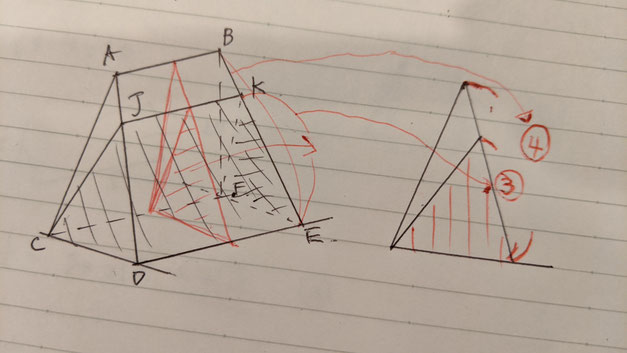 B
A
K
J
④
③
F
C
E.
D